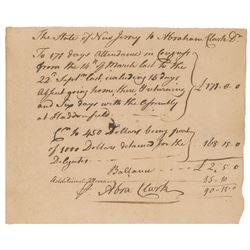 The State of New Jersey to Abraham Clark Dr
To 171 days Attendance in Congress
from the 14th of March last to the
22d Septr last including 16 days
Spent going home there, & returning
and Six days with the Assembly
at Haddonfield
£171..0..0
Cr to 450 Dollars being part
of 3000 Dollars obtained for the
Delegates
168..15..0
Ballance
£2..5..0
Additional Allowance
85..10
90..15..0
Abra Clark